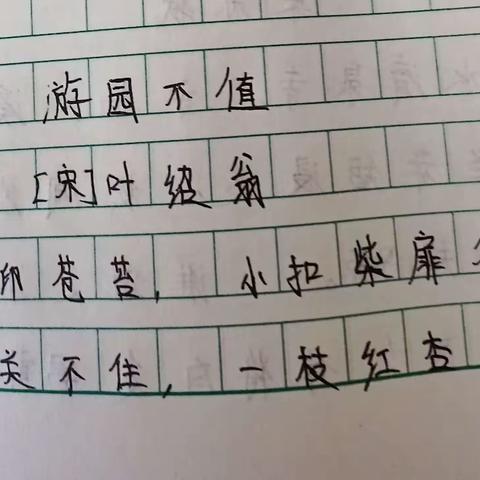 游园不值
[宋]叶绍翁
印苍苔，小扣柴扉
关不住，一枝红杏